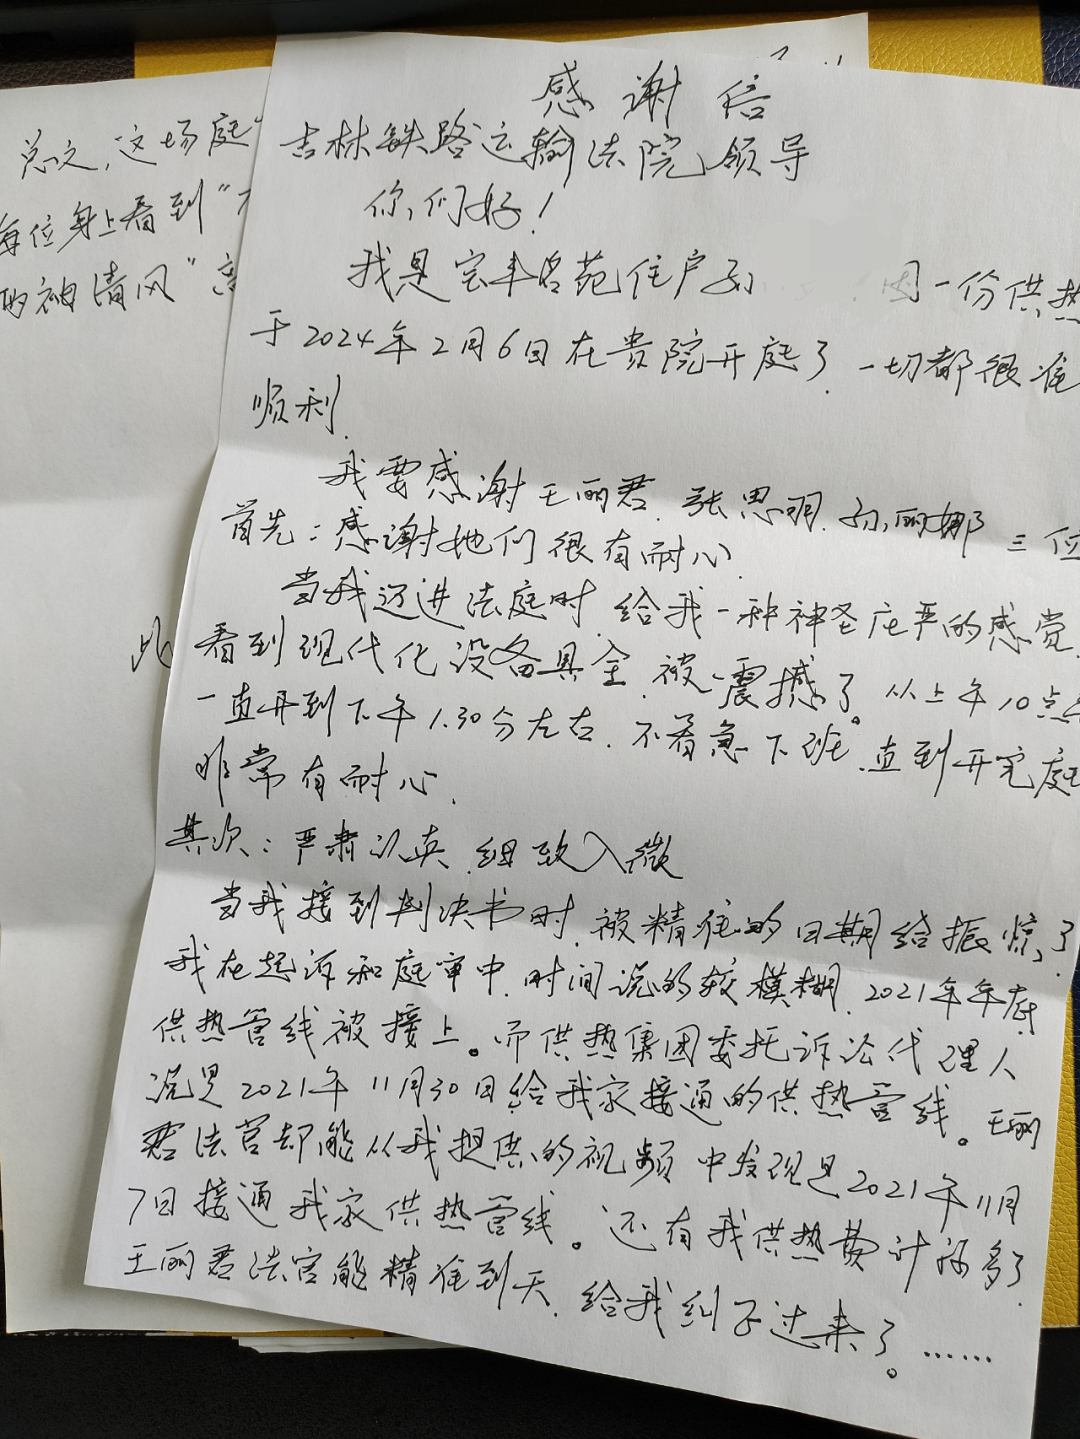 感谢信
吉林铁路运输法院领导
你们好!
我是宝丰名苑住户孙 因一份供热
于2024年2月6日在贵院开庭了.一切都很准
顺利.
我要感谢王丽君.张思明.孙丽娜三位
首先:感谢她们很有耐心.
当我迈进法庭时.给我一种神圣庄严的感觉.
看到现代化设备具全.被震撼了。从上午10点
一直开到下午1.30分左右.不着急下班.直到开完庭
非常有耐心.
其次:严肃认真.细致入微
当我接到判决书时.被精准的日期给振惊了.
我在起诉和庭审中.时间说的较模糊.2021年年底
供热管线被接上。而供热集团委托诉讼代理人
说是2021年11月30日给我家接通的供热管线。王丽
君法官却能从我提供的视频中发现是2021年11月
7日接通我家供热管线。还有我供热费计算多了.
王丽君法官能精准到天.给我纠正过来了。……
总之,这场庭
每位身上看到"
的袖清风"
此